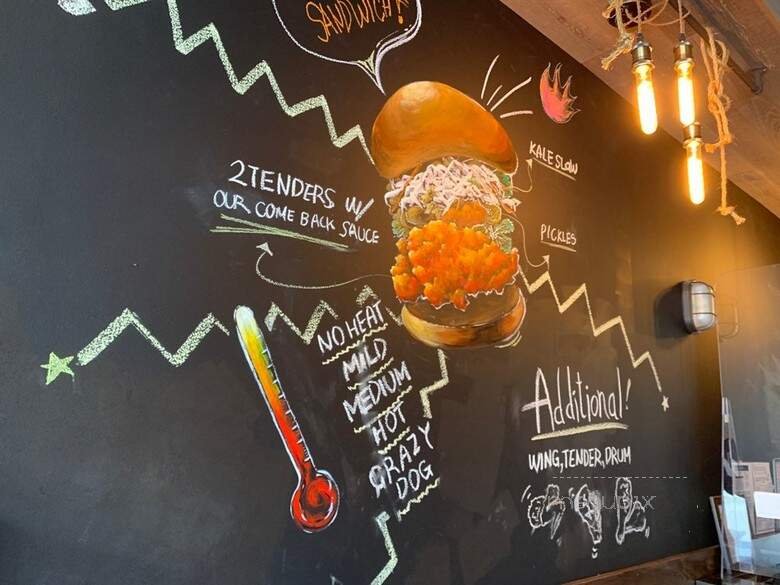 SANDWICH!
KALESLOW
2TENDERS W/
OUR COME BACK SAUCE
PICKLES
NO HEAT
MILD
MEDIUM
HOT
CRAZY
DOG
Additional!
WING,TENDER,DRUM